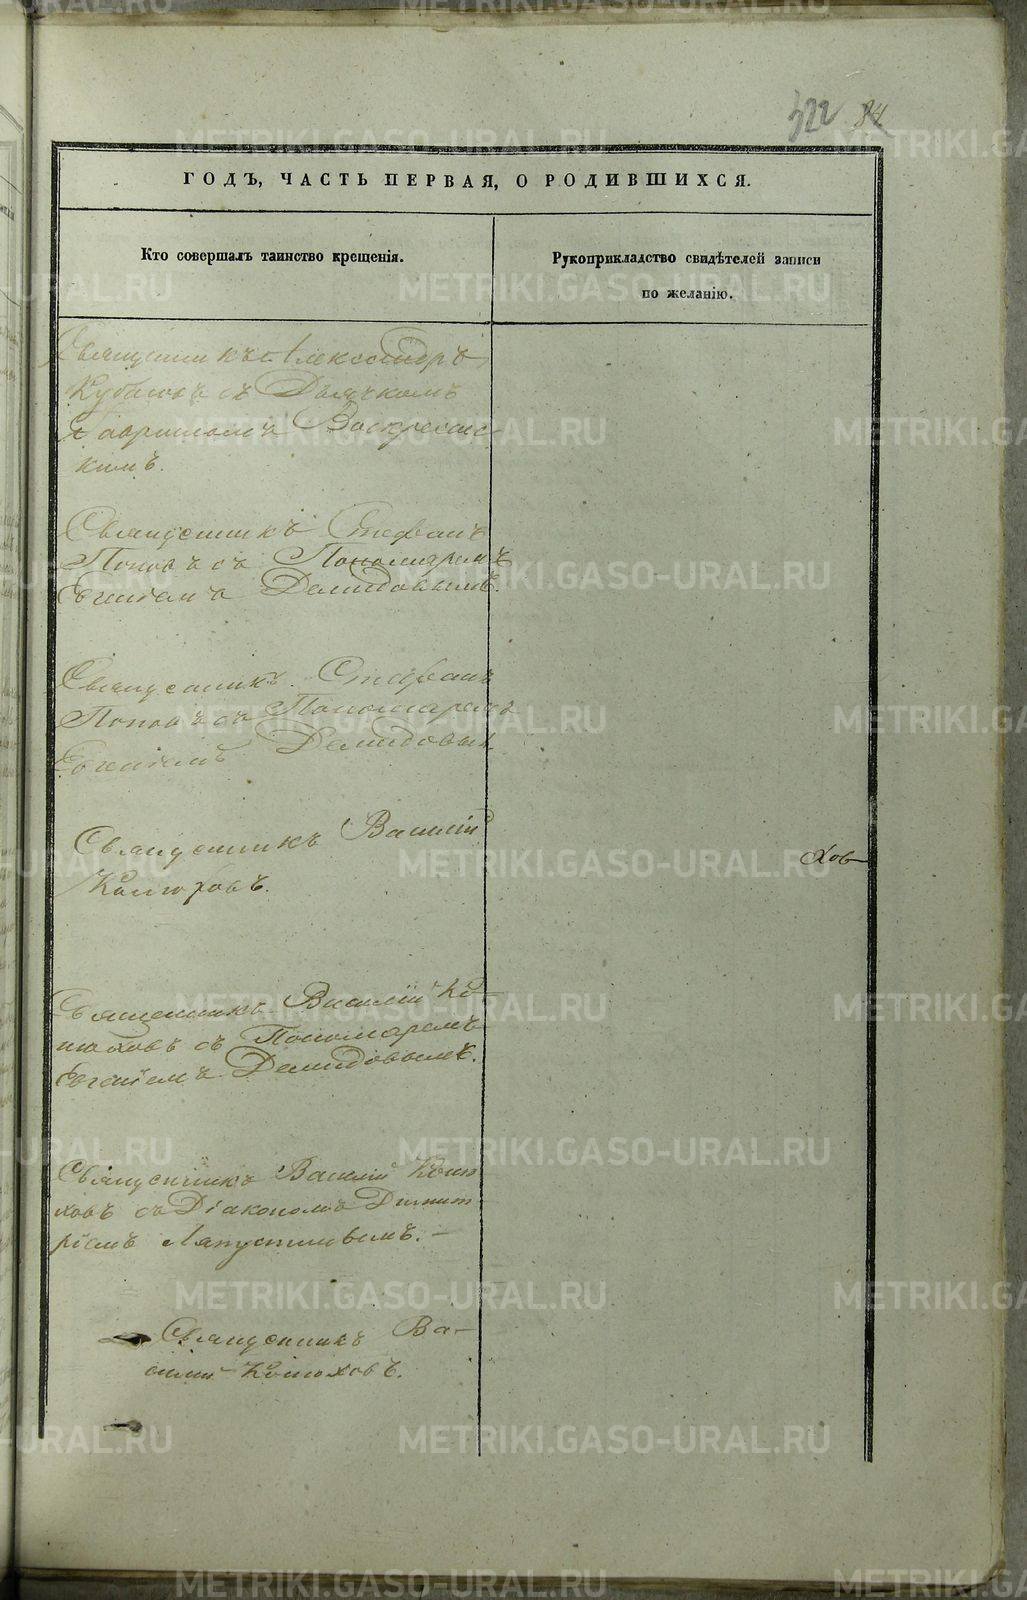 322 84
ГОДЪ, ЧАСТЬ ПЕРВАЯ, О РОДИВШИХСЯ.
Кто совершалъ таинство крещенія.
Рукоприкладство свидѣтелей записи
по желанію.
Священникъ Александръ
съ Дьячкомъ
Гавріиломъ Воскресенс-
кимъ.
Священникъ Стефанъ
Поповъ съ Пономаремъ
Евгеніемъ Демидовымъ.
Священникъ Стефанъ
Поповъ съ Пономаремъ
Евгеніемъ Демидовым
Священникъ Василій
Конюховъ.
хов
Священникъ Василій Ко-
нюховъ съ Пономаремъ
Евгеніемъ Демидовымъ.
Священникъ Василій Коню
ховъ съ Діакономъ Димит
ріемъ Ляпустинымъ. –
Священникъ Ва-
силій Конюховъ.
METRIKI.GASO-URAL.RU